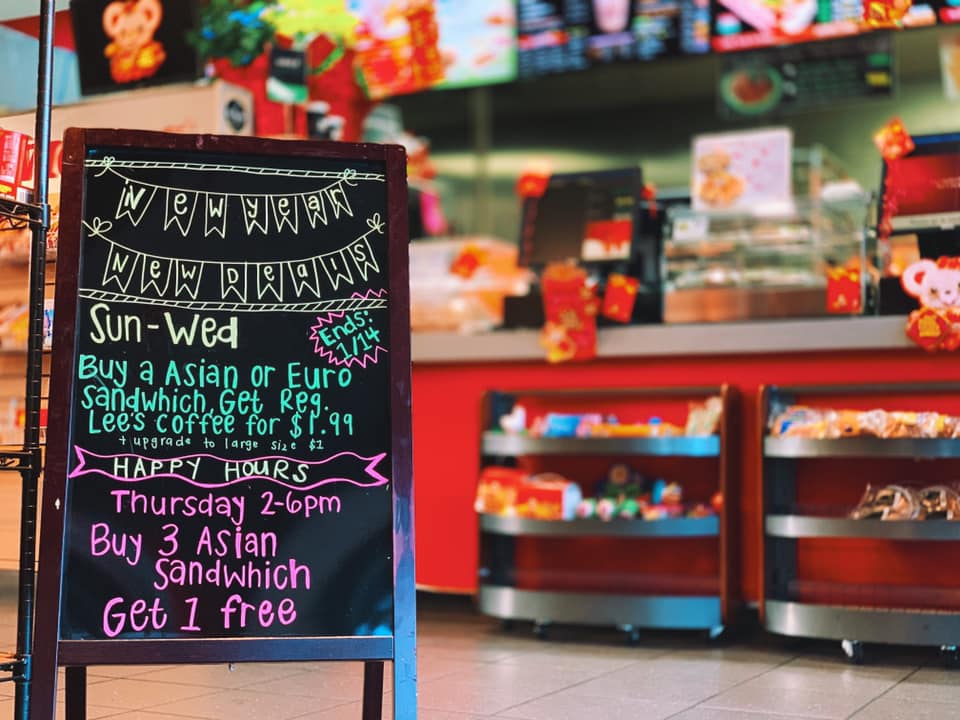 New year
New Deals
Sun-Wed
Ends:
1/14
Buy a Asian or Euro
Sandwhich, Get Reg.
Lee's Coffee for $1.99
+ upgrade to large size $1
HAPPY HOURS
Thursday 2-6pm
Buy 3 Asian
Sandwhich
Get 1 free